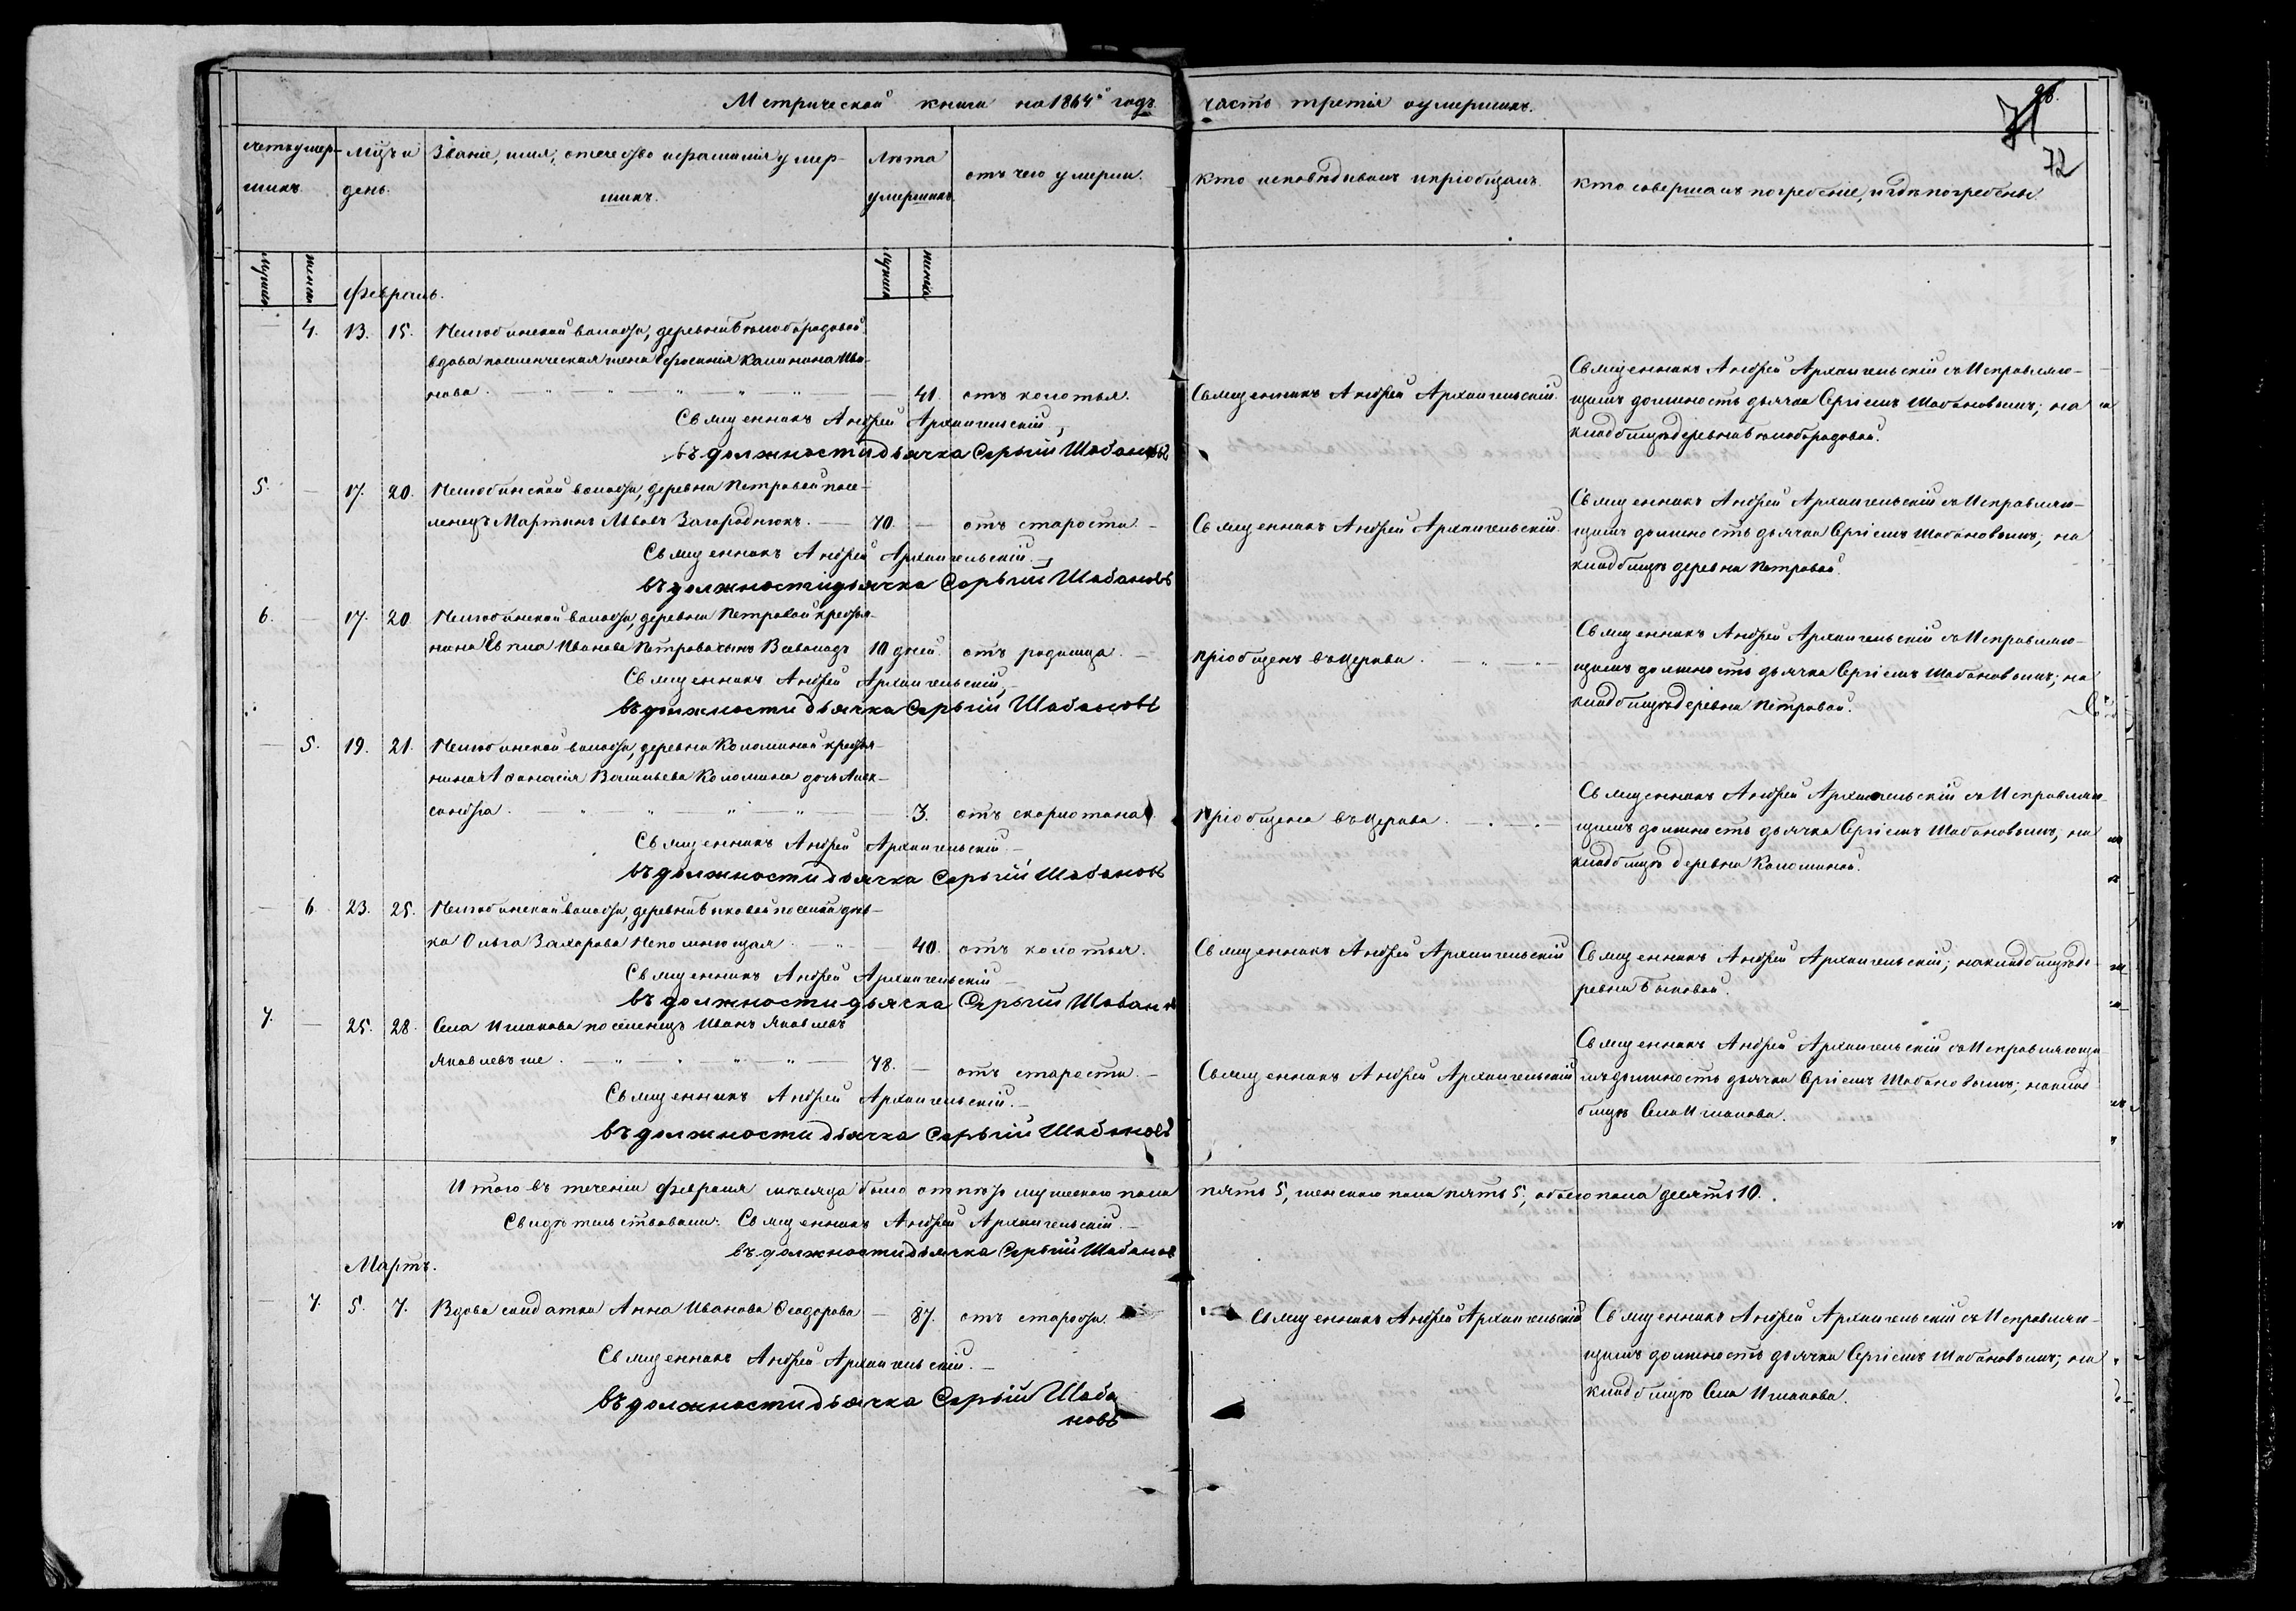 Метрической книги на 1864й годъ часть третія оумершихъ.
98.
71
72
счетъ умершихъ
мцъ и день.
Званіе, имя, отечество и фамилія умершихъ.
Лѣта умершихъ
отъ чего умерли.
кто исповѣдывалъ и пріобщалъ.
кто совершалъ погребеніе, и гдѣ погребены.
мужеск
женск
мужеск
женска
Февраль.
— 4. 13. 15. волости, деревни Бѣлобородовой
вдова поселенческая жена Ефросинія Калинина Ива-
нова. — 41. отъ колотья. Священникъ Андрей Архангельскій.
Священникъ Андрей Архангельскій съ Исправляю-
щимъ должность дьячка Сергіемъ Шабановымъ; на
кладбищѣ деревни Бѣлобородовой.
Священникъ Андрей Архангельскій
въ должности дьячка Сергій Шабановъ
5. — 17. 20. волости, деревни Петровой посе-
ленецъ Мартинъ Львовъ Загороднюкъ. — 70. — отъ старости. — Священникъ Андрей Архангельскій.
Священникъ Андрей Архангельскій съ Исправляю-
щимъ должность дьячка Сергіемъ Шабановымъ; на
кладбищѣ деревни Петровой.
Священникъ Андрей Архангельскій.
въ должности дьячка Сергій Шабановъ
6. — 17. 20. волости, деревни Петровой крестья-
нина Евпла Иванова Петрова сынъ Всеволодъ 10 дней. отъ родимца. — пріобщенъ въ церкви.
Священникъ Андрей Архангельскій съ Исправляю-
щимъ должность дьячка Сергіемъ Шабановымъ; на
кладбищѣ деревни Петровой.
Священникъ Андрей Архангельскій,
въ должности дьячка Сергій Шабановъ
— 5. 19. 21. волости, деревни Коломиной крестья-
нина Афанасія Васильева Коломина дочь Алек-
сандра. — 3. отъ скарлотина. пріобщена въ церкви.
Священникъ Андрей Архангельскій съ Исправляю-
щимъ должность дьячка Сергіемъ Шабановымъ; на
кладбищѣ деревни Коломиной.
Священникъ Андрей Архангельскій —
въ должности дьячка Сергій Шабановъ
— 6. 23. 25. волости, деревни Быковой посельская дѣв-
ка Ольга Захарова Непомнющая. — 40. отъ колотья. Священникъ Андрей Архангельскій
Священникъ Андрей Архангельскій; на кладбищѣ де-
ревни Быковой.
Священникъ Андрей Архангельскій —
въ должности дьячка Сергій Шабановъ
7. — 25. 28. Села поселенецъ Иванъ Яковлевъ
Яковлевъ же. — 78. — отъ старости. — Священникъ Андрей Архангельскій
Священникъ Андрей Архангельскій съ Исправляющи
мъ должность дьячка Сергіемъ Шабановымъ; на клад
бищѣ Села
Священникъ Андрей Архангельскій. —
въ должности дьячка Сергій Шабановъ
Итого въ теченіи Февраля мѣсяца было отпѣто мужескаго пола пять 5, женскаго пола пять 5, обоего пола десять 10.
Свидѣтельствовали: Священникъ Андрей Архангельскій. —
въ должности дьячка Сергій Шабанов
Мартъ.
— 7. 5. 7. Вдова солдатка Анна Иванова Феодорова — 87. отъ старости. Священникъ Андрей Архангельскій
Священникъ Андрей Архангельскій съ Исправляю-
щимъ должность дьячка Сергіемъ Шабановымъ; на
кладбищѣ Села
Священникъ Андрей Архангельскій. —
въ должности дьячка Сергій Шаба
новъ